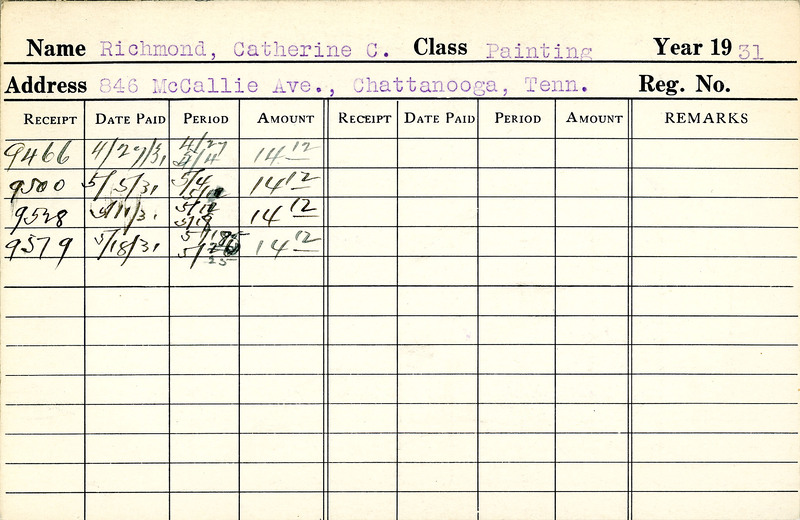 Name Richmond, Catherine C. Class Painting Year 19 31
Address 846 McCallie Ave., Chattanooga, Tenn. Reg. No.
RECEIPT DATE PAID PERIOD AMOUNT RECEIPT DATE PAID PERIOD AMOUNT REMARKS
9466 4/27/31 4/27 5/4 14 12
9500 5/5/31 5/4 14 12
9528 5/11/31 5/12 5/18 14 12
9579 5/18/31 5/18 25 14 12